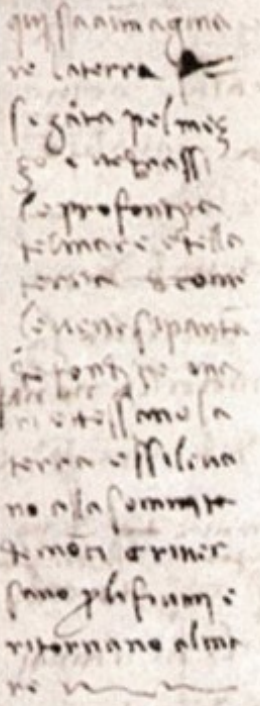 qui saaīmagina
re laterra
segāta pel meç
ço e vedrassi
le profondita
delmare e della
terra e come
le vene si partā
de fondi de ma
ri e tessano la
terra essileva
no ala sommita
demōti e river
sano pli fiumi e
ritornano alma
re